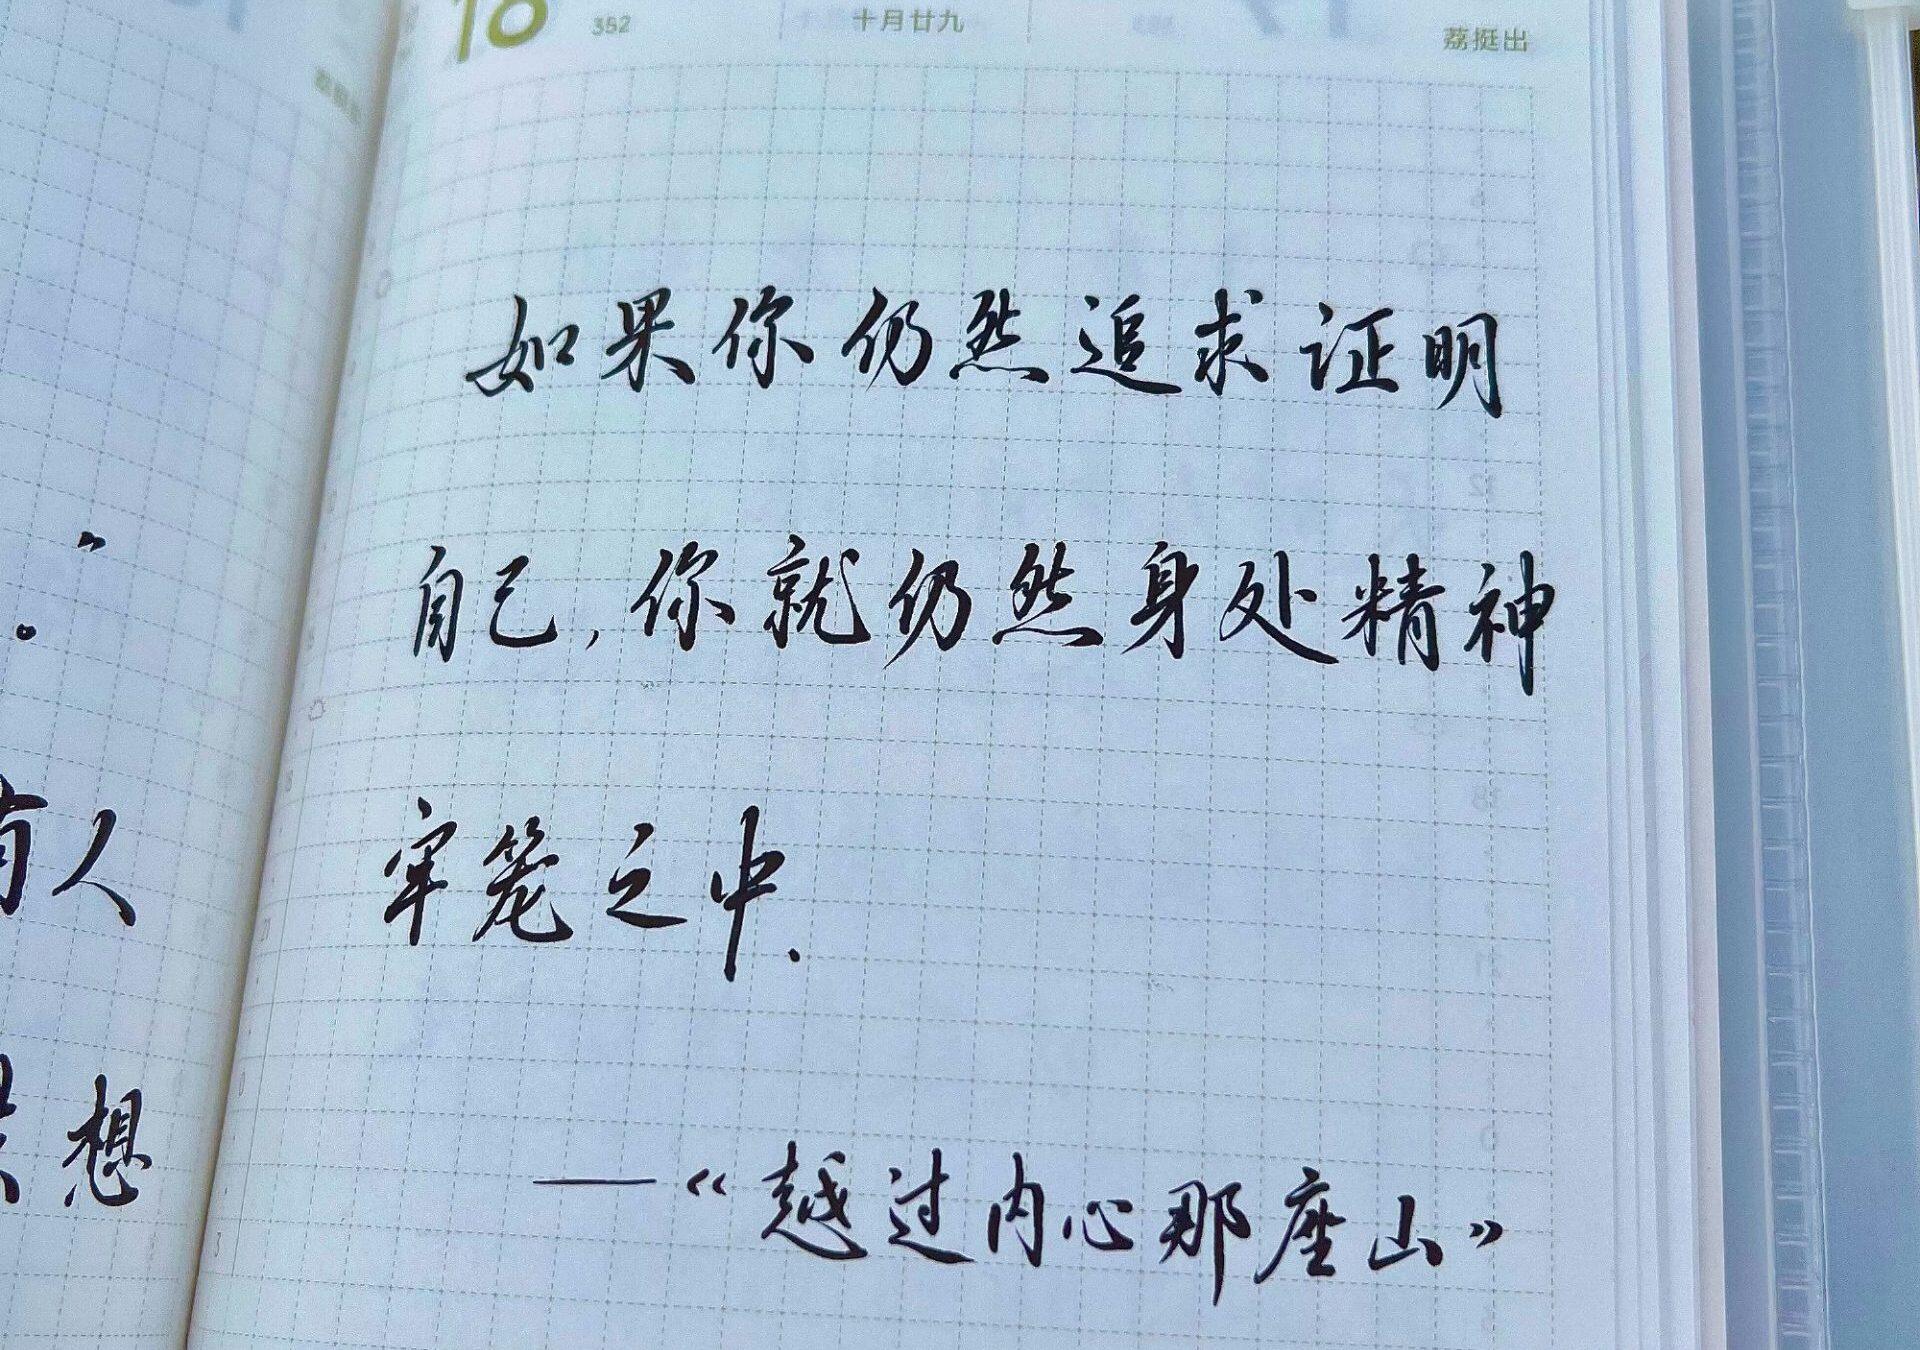 352
十月廿九
荔挺出
如果你仍然追求证明
自己,你就仍然身处精神
牢笼之中.
—《越过内心那座山》
人
想